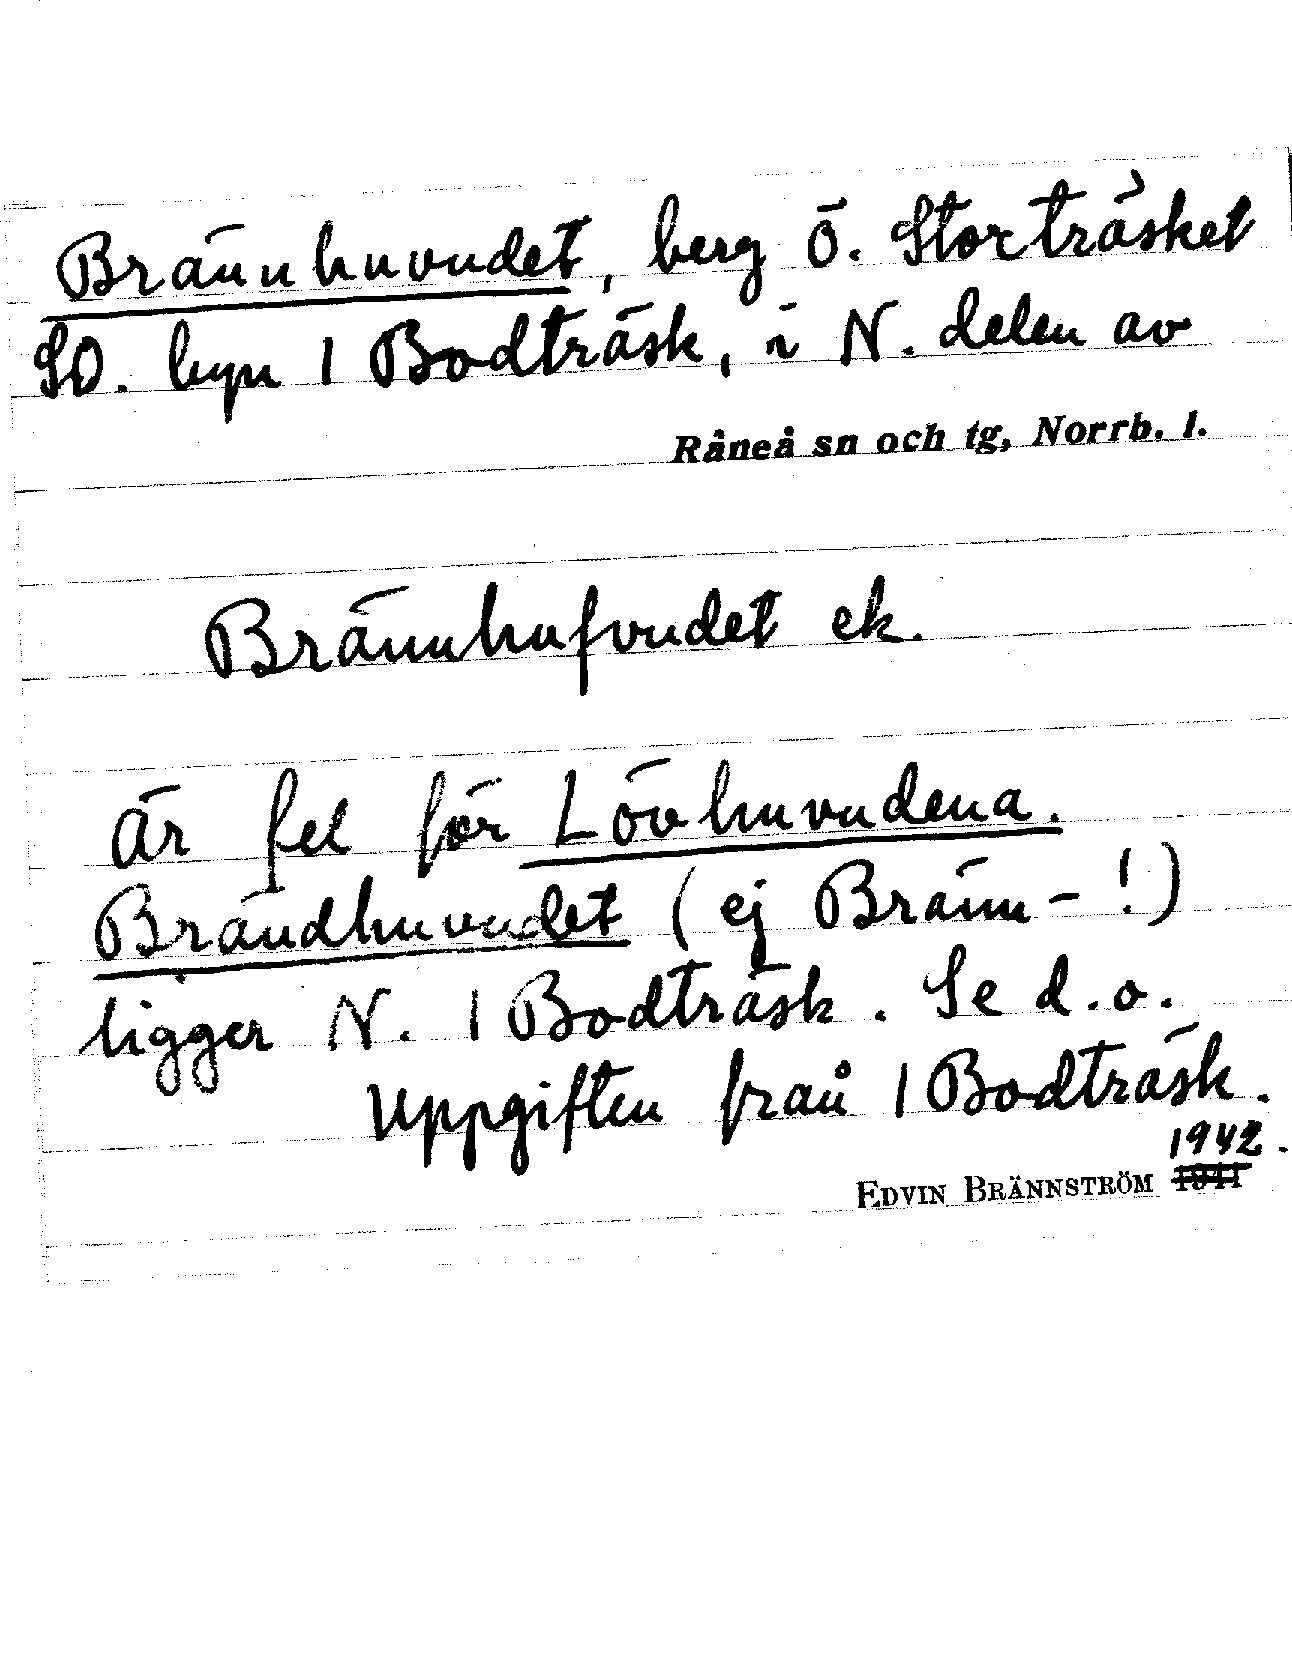 Brännhuvudet, berg Ö. Storträsket
SO. byn 1 Bodträsk, i N. delen av
Råneå sn och tg, Norrb. l.
Brännhufvudet ek.
Är fel för Lövhuvudena.
Brändhuvudet (ej Bränn-!)
ligger N. 1 Bodträsk. Se d.o.
Uppgiften från 1 Bodträsk.
1942.
EDVIN BRÄNNSTRÖM 1941